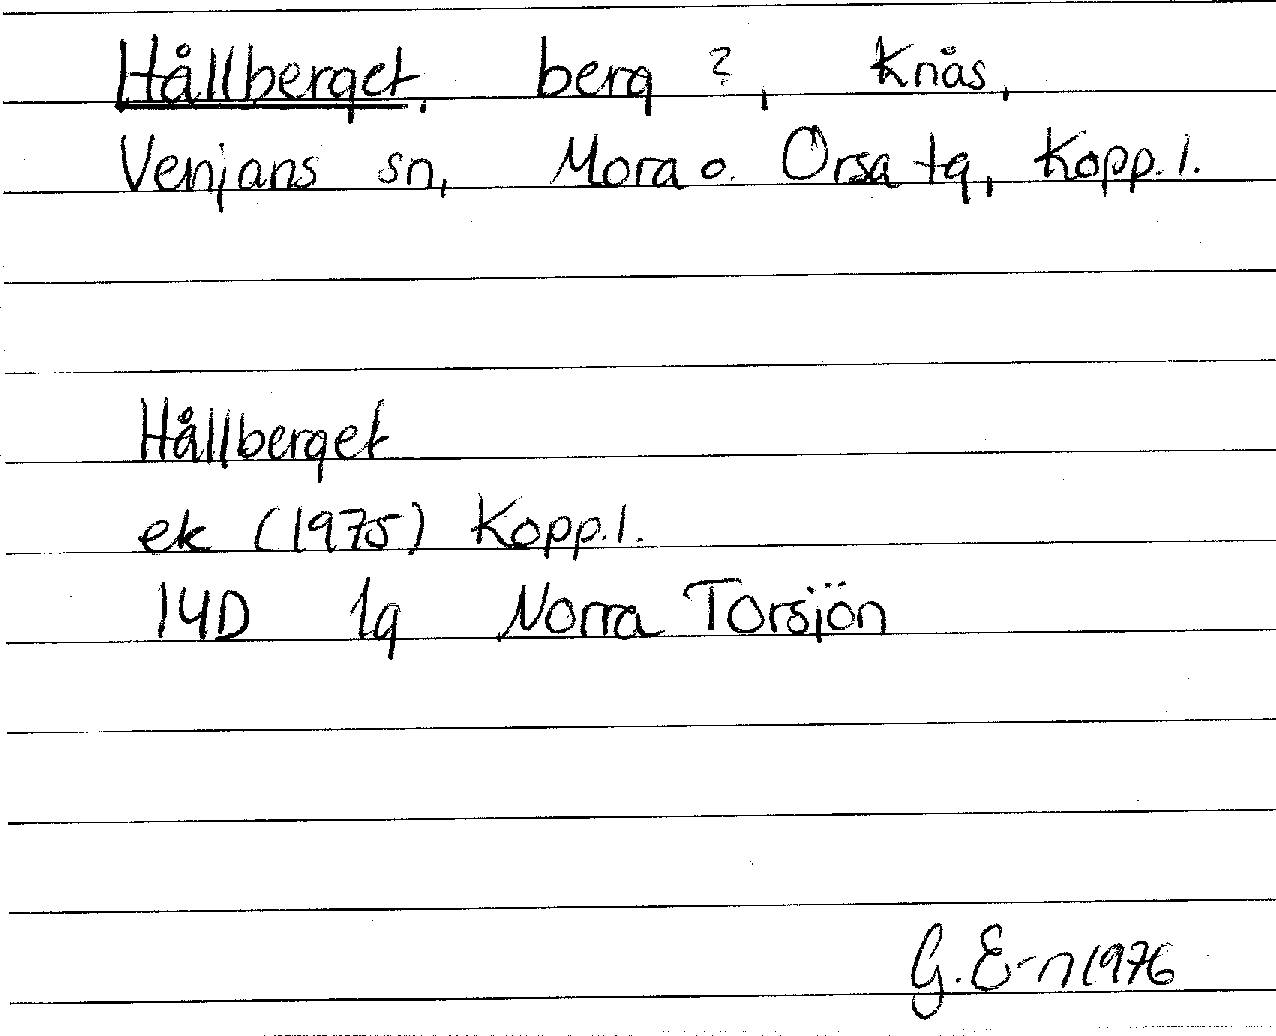 Hållberget, berg ?, Knås,
Venjans sn, Mora o. Orsa tg, Kopp. l.
Hållberget
ek (1975) Kopp. l.
14D 1g Norra Torsjön
G. E-n 1976